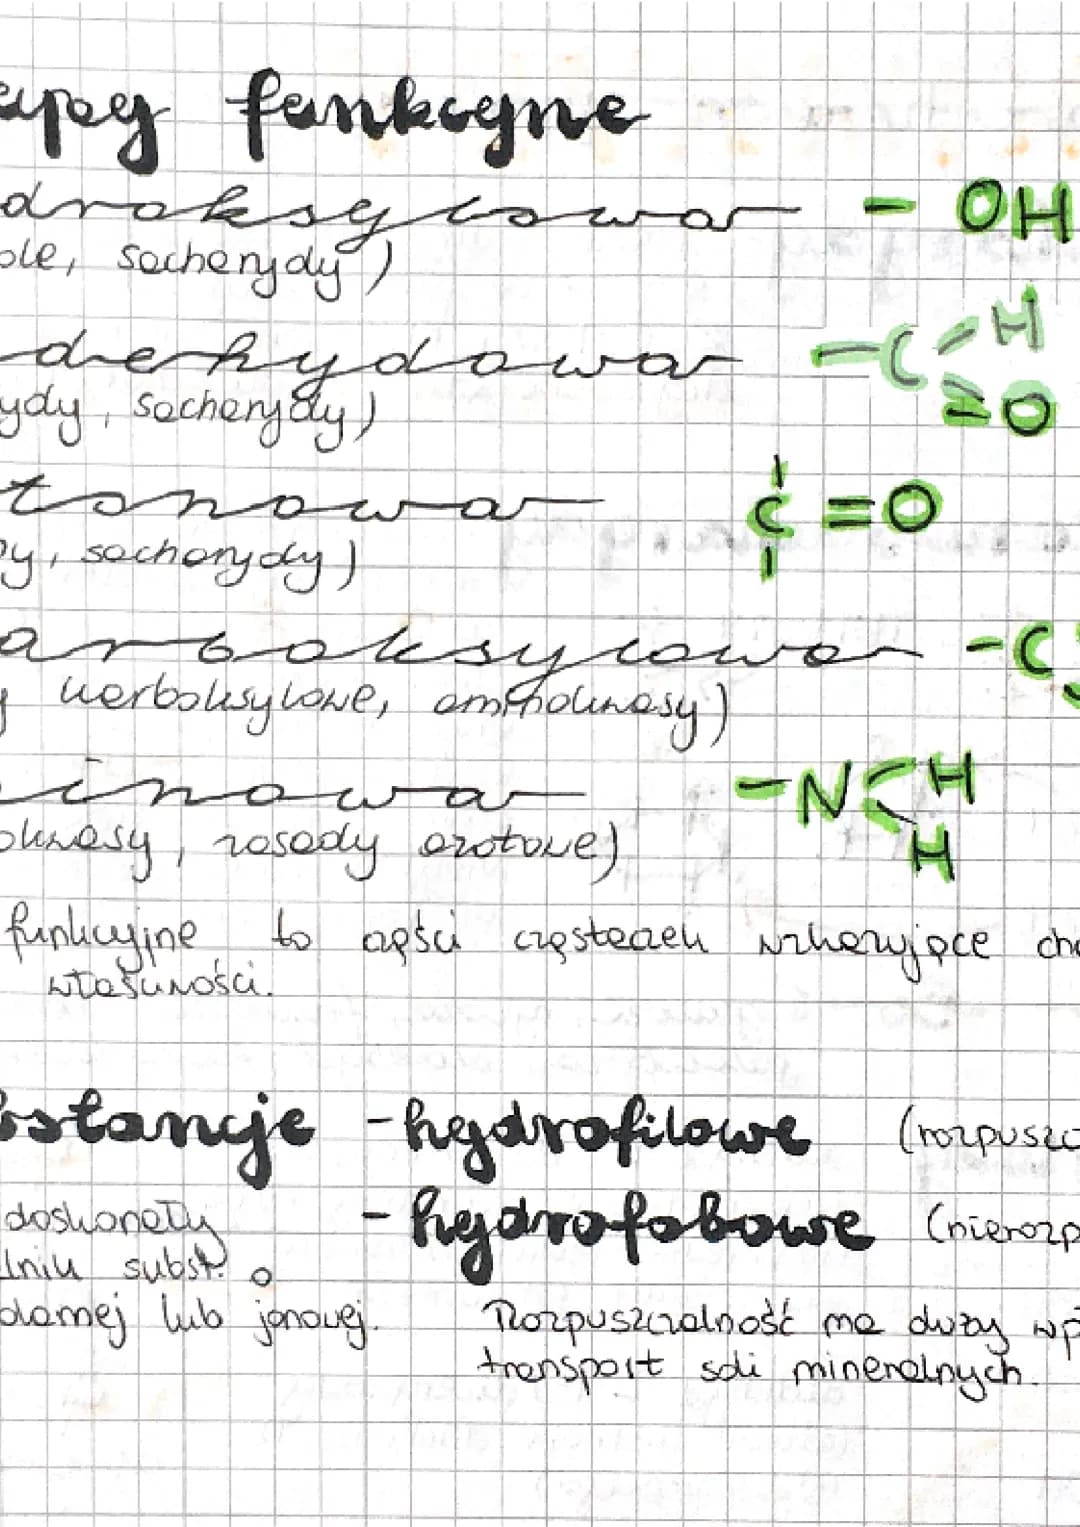 upy funkcyjne
droksylowa - OH
ole, sacharydy)
dehydowa -C -H
=O
ydy, sacharydy)
tonowa C =O
y, sacharydy)
arboksylowa -C
y karboksylowe, aminokwasy)
inowa -N H
H
okwasy, zasady azotowe)
funkcyjne to części cząsteczek wskazujące
własności.
bstancje - hydrofilowe (rozpuszc
doskonały - hydrofobowe (nierozp
lnik subst. o
olarnej lub jonowej.
Rozpuszczalność ma duży wp
transport soli mineralnych.